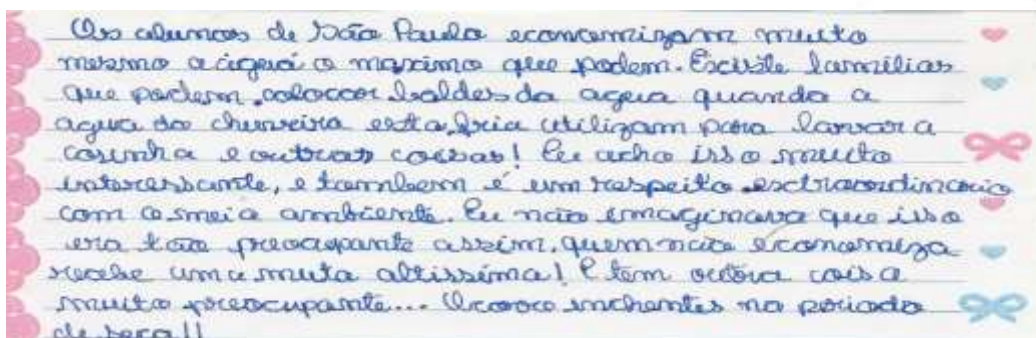 Os alunos de São Paulo economizam muito
mesmo a água o maximo que podem. Existe familias
que podem colocar baldes da agua quando a
agua do chuveiro esta fria utilizam para lavar a
cosinha e outras coisas! Eu acho isso muito
interessante, e tambem é um respeito esctraordinario
com o meio ambiente. Eu não imaginava que isso
era tão preocupante assim. quem não economiza
recebe uma muta altissima! E tem outra coisa
muito preocupante... Ocorre enchentes no periodo
de seca!!